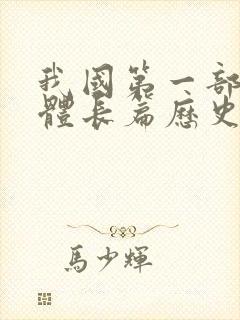 我國第一部
體長篇歷史
馬少輝